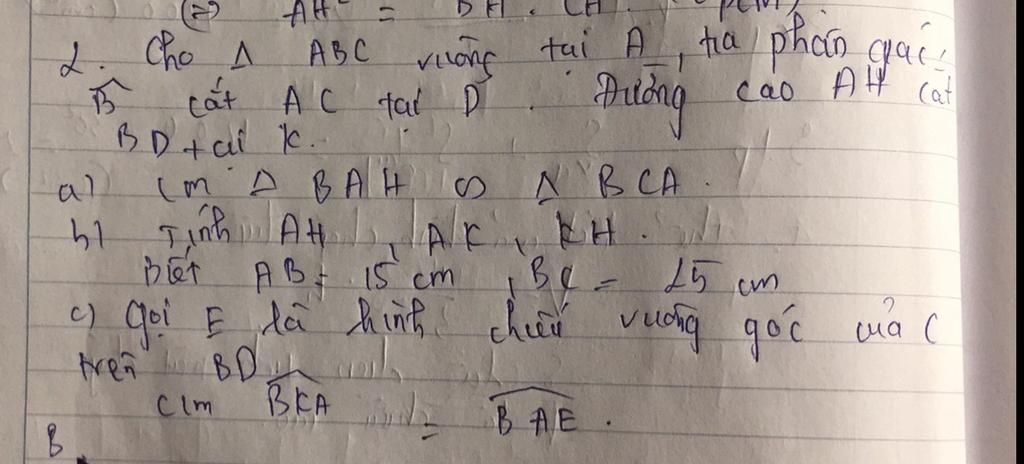 (=) AH² = BH . CH
2. Cho Δ ABC vuông tại A, tia phân giác
B̂ cắt AC tại D. Đường cao AH cắt
BD tại K.
a) Cm Δ BAH ∽ Δ BCA.
b) Tính AH, AK, KH.
Biết AB = 15 cm, BC = 25 cm
c) gọi E là hình chiếu vuông góc của C
trên BD
Cm \widehat{BKA} = \widehat{BAE}.
B